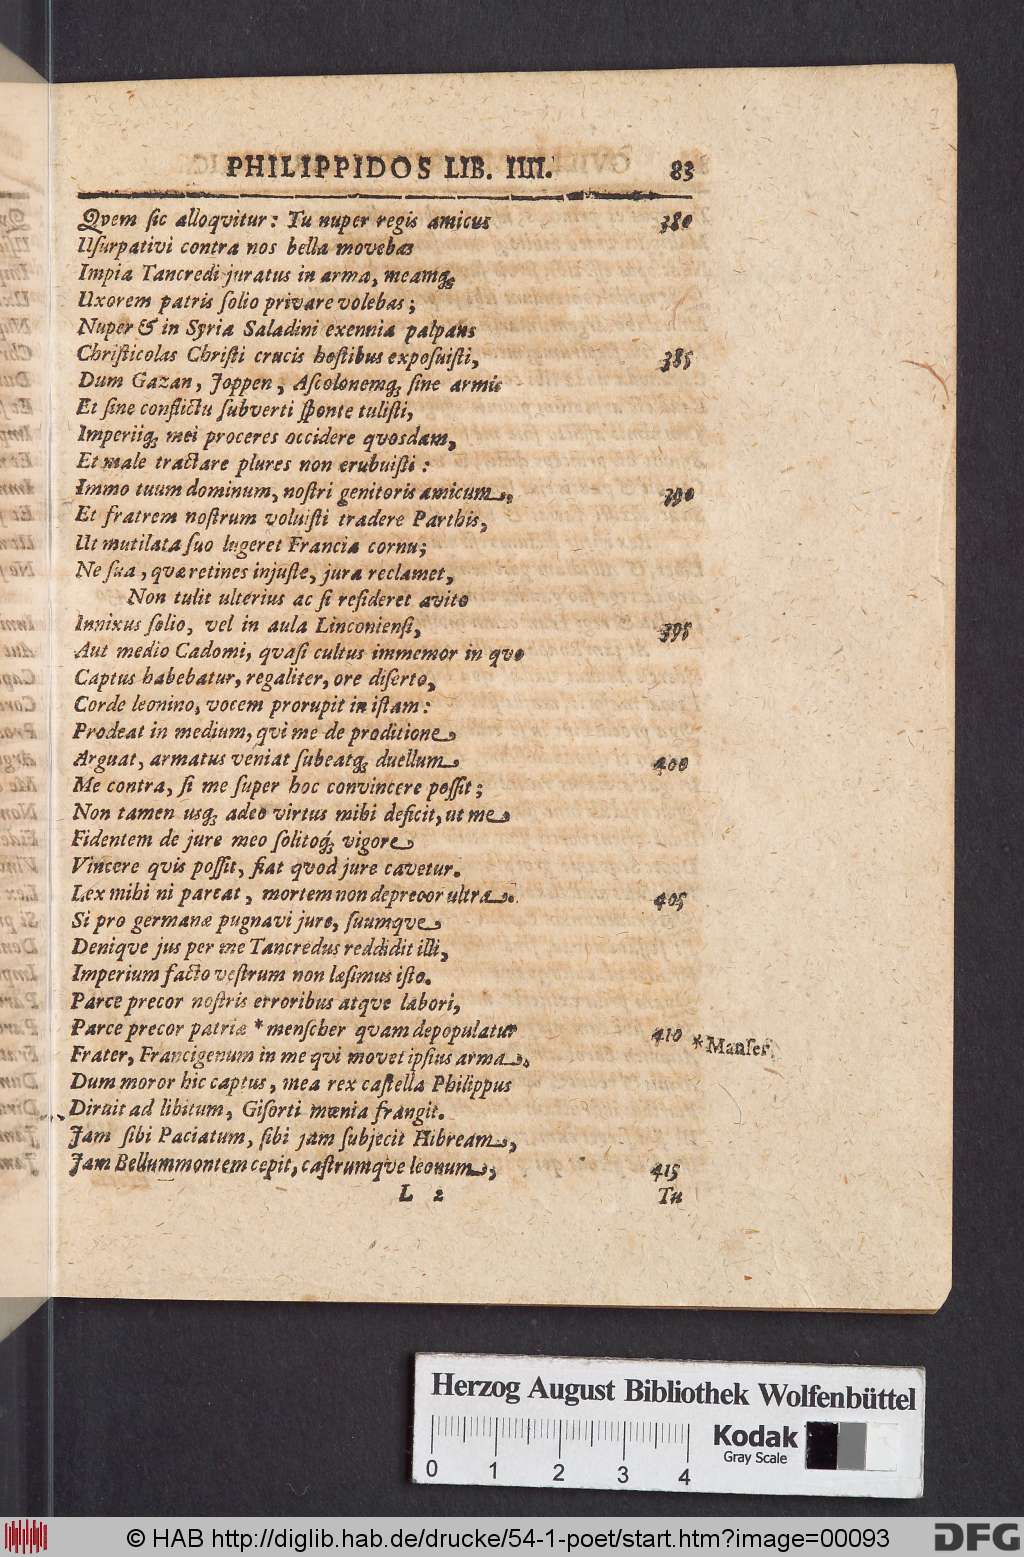 PHILIPPIDOS LIB. IIII. 83
Qvem sic alloqvitur: Tu nuper regis amicus 380
Usurpativi contra nos bella movebas
Impia Tancredi juratus in arma, meamq;
Uxorem patris solio privare volebas;
Nuper & in Syria Saladini exennia palpans
Christicolas Christi crucis hostibus exposuisti, 385
Dum Gazan, Joppen, Ascolonemq; sine armis
Et sine conflictu subverti sponte tulisti,
Imperiiq; mei proceres occidere qvosdam,
Et male tractare plures non erubuisti:
Immo tuum dominum, nostri genitoris amicum, 390
Et fratrem nostrum voluisti tradere Parthis,
Ut mutilata suo lugeret Francia cornu;
Ne sua, qvæ retines injuste, jura reclamet,
Non tulit ulterius ac si resideret avito
Innixus solio, vel in aula Linconiensi, 395
Aut medio Cadomi, qvasi cultus immemor in qvo
Captus habebatur, regaliter, ore diserto,
Corde leonino, vocem prorupit in istam:
Prodeat in medium, qvi me de proditione
Arguat, armatus veniat subeatq; duellum 400
Me contra, si me super hoc convincere possit;
Non tamen usq; adeo virtus mihi deficit, ut me
Fidentem de jure meo solitoq; vigore
Vincere qvis possit, fiat qvod jure cavetur.
Lex mihi ni parcat, mortem non deprecor ultra. 405
Si pro germanæ pugnavi jure, suumqve
Deniqve jus per me Tancredus reddidit illi,
Imperium facto vestrum non læsimus isto.
Parce precor nostris erroribus atqve labori,
Parce precor patriæ * menscher qvam depopulatur 410 * Manser,
Frater, Francigenum in me qvi movet ipsius arma,
Dum moror hic captus, mea rex castella Philippus
Diruit ad libitum, Gisorti mœnia frangit.
Jam sibi Paciatum, sibi jam subjecit Hibream,
Jam Bellummontem cepit, castrumqve leonum, 415
L 2 Tu
Herzog August Bibliothek Wolfenbüttel
0 1 2 3 4
Kodak
Gray Scale
© HAB http://diglib.hab.de/drucke/54-1-poet/start.htm?image=00093
DFG